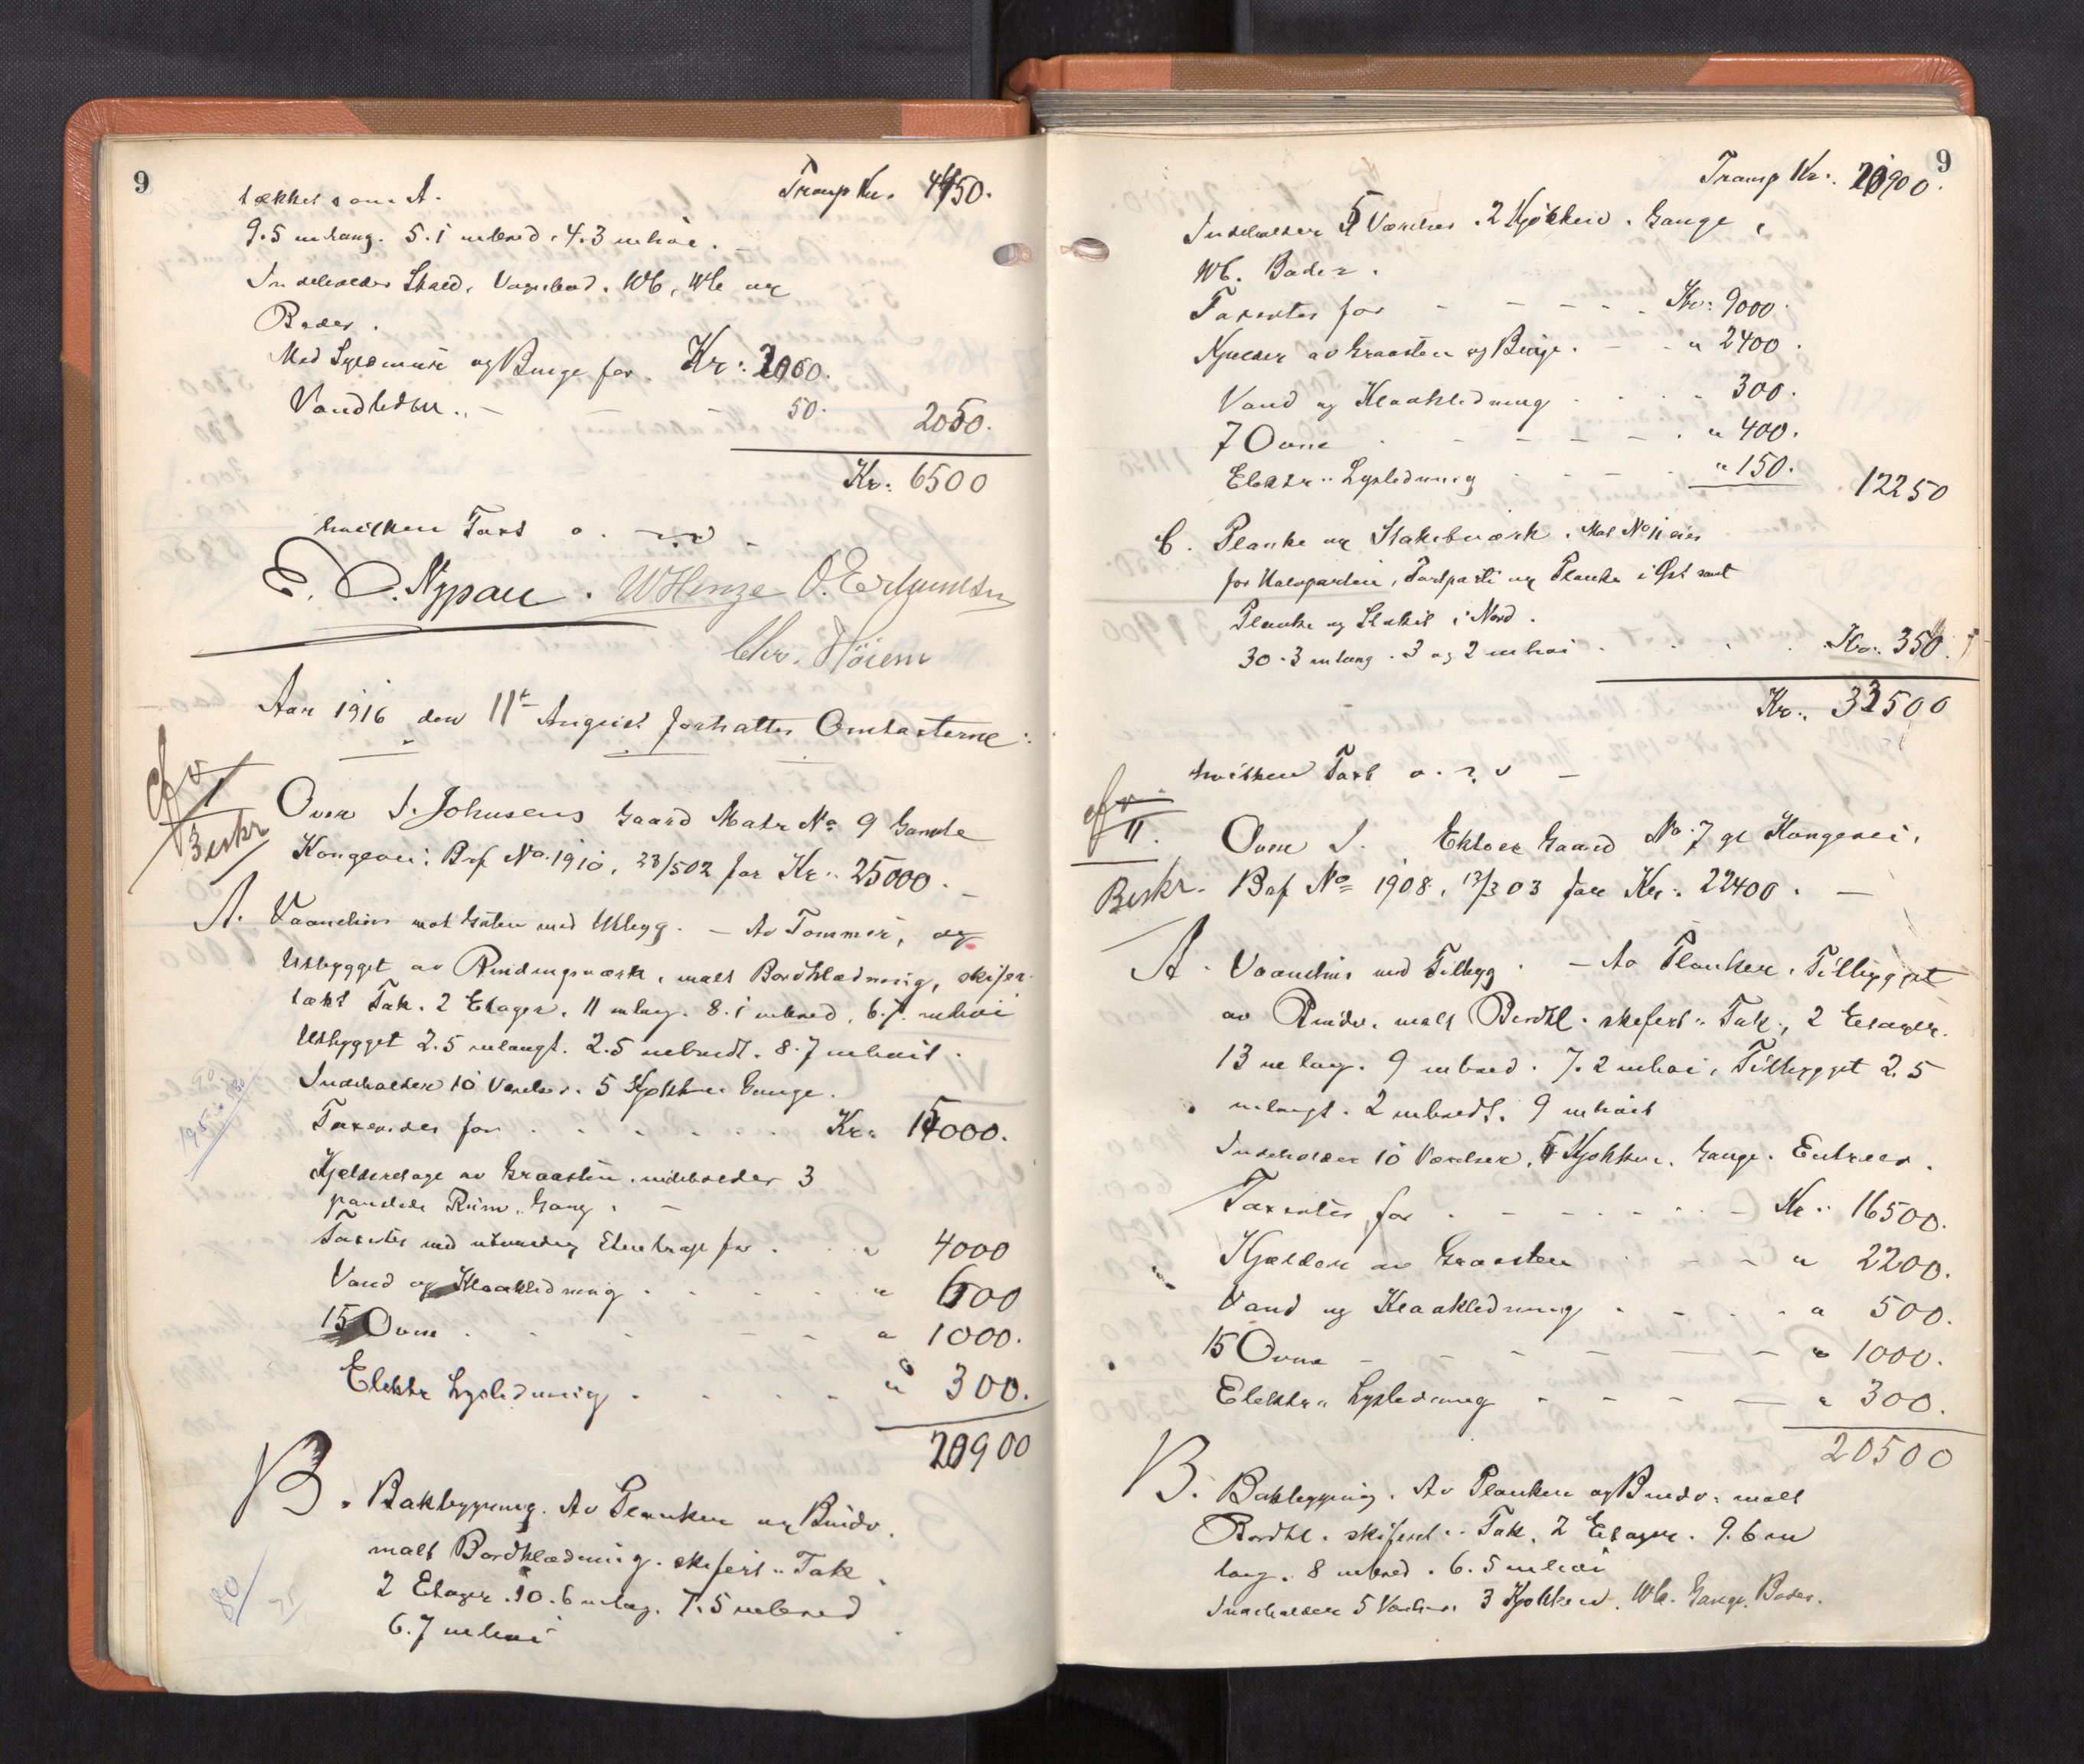 9
tækket som A.
Transp Kr. 4450.
9.5 m lang. 5.1 m bred. 4.3 m høi.
Indeholder Stald, Vognbod. Wb, Wc og
Boder.
Med Syldmur og Binge for. Kr: 2000.
Vandledn. 50. 2050.
Kr: 6500
hvilken Taxt o.
E. D. Nypan. W Henze O. Erlandsen
Chr. Höiem
Aar 1916 den 11te August forhattes Omtaxterne:
cfr
I Over J. Johnsens Gaard Matr No 9 Gamle
Beskr Kongevei. Brf No. 1910, 23/502 for Kr. 25000.
A. Vaanehus mot Gaten med Utbygg. - Av Tømmer, og
Utbygget av Bindingsværk, malt Bordklædning, skifer-
tækt Tak. 2 Etager. 11 m lang. 8.1 m bred. 6.7 m høi
Utbygget 2.5 m langt. 2.5 m bredt. 8.7 m høit.
Indeholder 10 Værelser. 5 Kjøkken Gange.
Taxeredes for Kr: 15000.
Kjelderetage av Graasten. indeholder 3
panelede Rum, Gang.
Taxeres med utvendig Stentrape for " 4000
Vand og Kloakledning " 600
15 Ovne " 1000.
Elektr Lysledning " 300.
20900
B. Bakbygning. Av Planker og Bindv.
malt Bordklædning. skifert. Tak.
2 Etager. 10.6 m lang. 7.5 m bred
6.7 m høi
80
9
Transp Kr: 20900.
Indeholder 5 Værelser. 2 Kjøkken. Gange,
Wb. Boder.
Taxertes for Kr: 9000.
Kjelder av Graasten og Binge. " 2400.
Vand og Kloakledning 300.
7 Ovne " 400.
Elektr. Lysledning " 150. 12250
C. Planke og Stakitværk. Mat No 11 eier
for Halvparten, Portparti og Planke i Øst samt
Planke og Stakit i Nord.
30.3 m lang. 3 og 2 m høi Kr. 350.
Kr. 33500
hvilken Taxt o.
cfr
II. Over J. Ekloes Gaard No. 7 gl Kongevei.
Beskr. Brf No 1908. 12/303 for Kr: 22400.
A. Vaanehus med Tilbygg. - Av Planker. Tilbygget
av Bindv. malt Bordkl. skifert. Tak, 2 Etager.
13 m lang. 9 m bred. 7.2 m høi, Tilbygget 2.5
m langt. 2 m bredt. 9 m høit
Indeholder 10 Værelser. 5 Kjøkken. Gange. Entreer.
Taxertes for Kr. 16500.
Kjelder av Graasten " 2200.
Vand og Kloakledning " 500.
15 Ovne " 1000.
Elektr. Lysledning " 300.
20500
B. Bakbygning. Av Planker og Bindv. malt
Bordkl. skifert. Tak, 2 Etager. 9.6 m
lang. 8 m bred. 6.5 m høi
Indeholder 5 Værelser 3 Kjøkken. Wb. Gange. Boder.